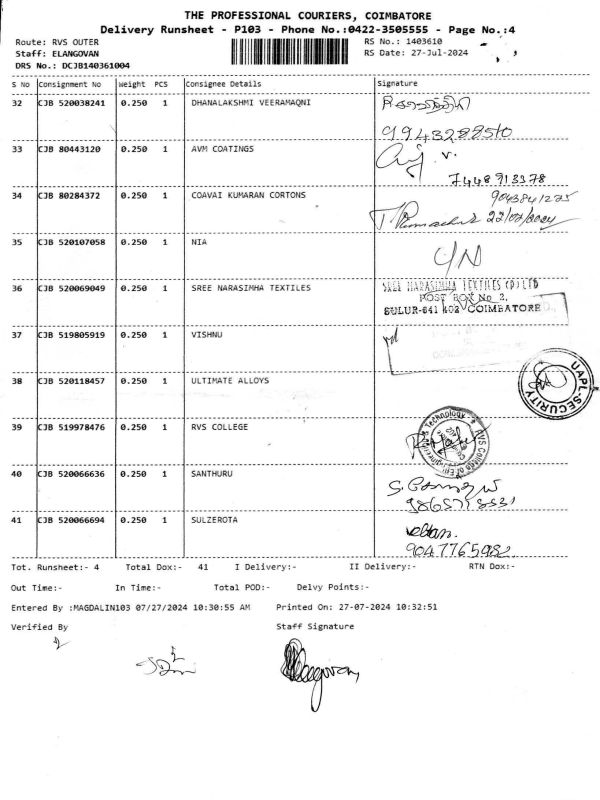 THE PROFESSIONAL COURIERS, COIMBATORE
Delivery Runsheet - P103 - Phone No.:0422-3505555 - Page No.:4
Route: RVS OUTER
Staff: ELANGOVAN
DRS No.: DCJB140361004
RS No.: 1403610
RS Date: 27-Jul-2024
S No Consignment No Weight PCS Consignee Details Signature
32 CJB 520038241 0.250 1 DHANALAKSHMI VEERAMAQNI
9943288510
33 CJB 80443120 0.250 1 AVM COATINGS
7448913378
34 CJB 80284372 0.250 1 COAVAI KUMARAN CORTONS
9043841225
35 CJB 520107058 0.250 1 NIA
36 CJB 520069049 0.250 1 SREE NARASIMHA TEXTILES
SREE NARASIMHA TEXTILES (P) LTD
POST BOX No 2,
SULUR-641 402 COIMBATORE
37 CJB 519805919 0.250 1 VISHNU
38 CJB 520118457 0.250 1 ULTIMATE ALLOYS
UAPL-SECURITY
39 CJB 519978476 0.250 1 RVS COLLEGE
RVS College of Engineering & Technology
40 CJB 520066636 0.250 1 SANTHURU
41 CJB 520066694 0.250 1 SULZEROTA
9047765982
Tot. Runsheet:- 4 Total Dox:- 41 I Delivery:- II Delivery:- RTN Dox:-
Out Time:- In Time:- Total POD:- Delvy Points:-
Entered By :MAGDALIN103 07/27/2024 10:30:55 AM Printed On: 27-07-2024 10:32:51
Verified By Staff Signature